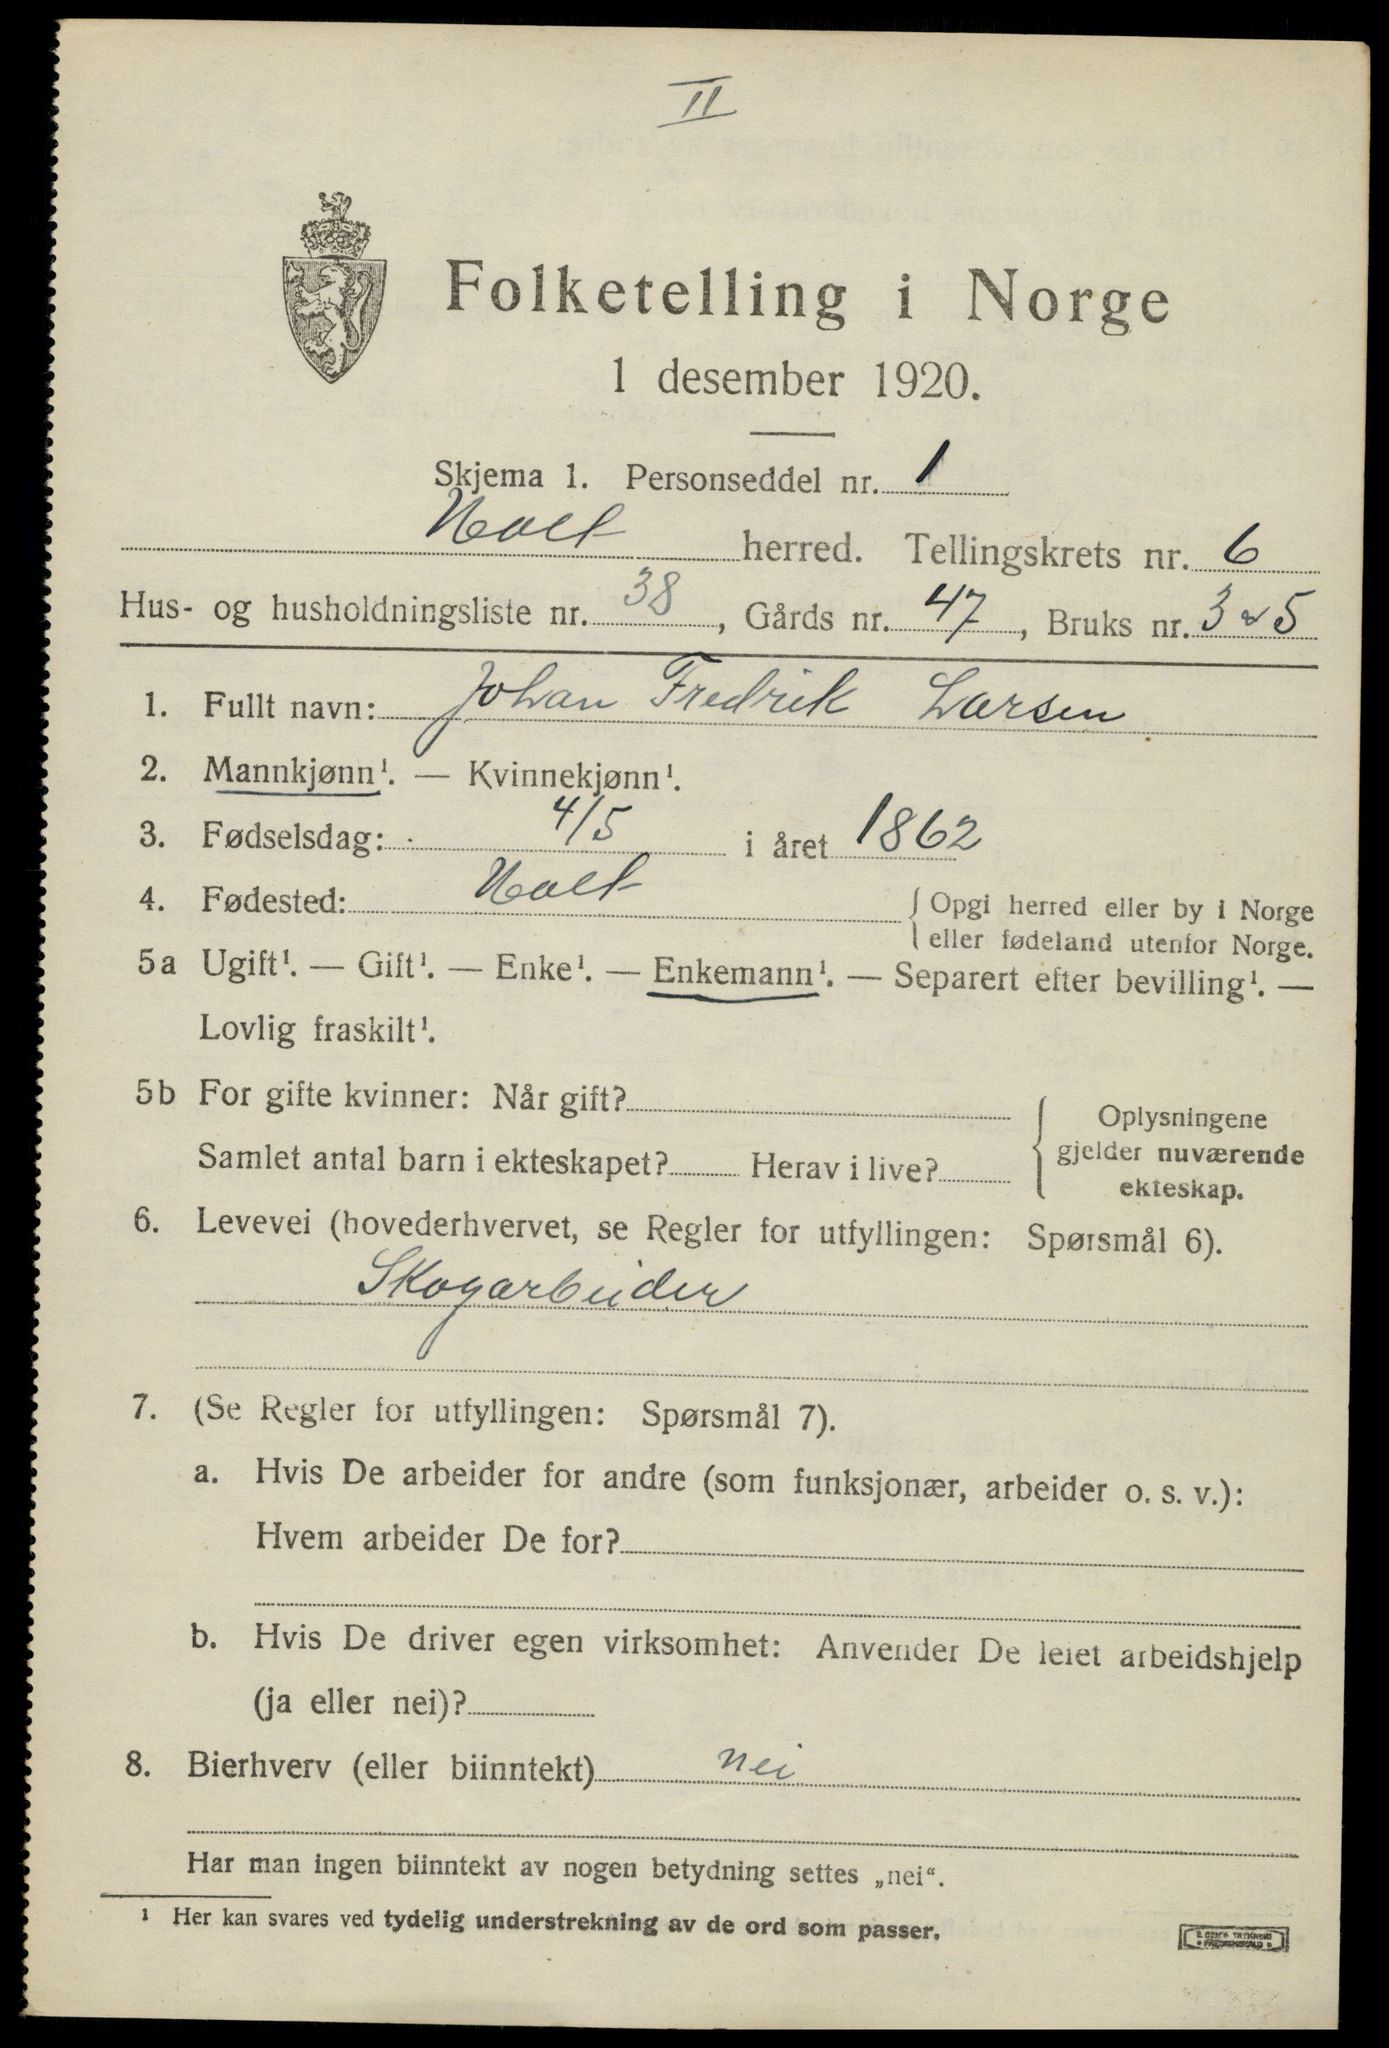 II
Folketelling i Norge
1 desember 1920.
Skjema 1. Personseddel nr. 1
Holt herred. Tellingskrets nr. 6
Hus- og husholdningsliste nr. 38, Gårds nr. 47, Bruks nr. 3 & 5
1. Fullt navn: Johan Fredrik Larsen
2. Mannkjønn¹. — Kvinnekjønn¹.
3. Fødselsdag: 4/5 i året 1862
4. Fødested: Holt { Opgi herred eller by i Norge
eller fødeland utenfor Norge.
5a Ugift¹. — Gift¹. — Enke¹. — Enkemann¹. — Separert efter bevilling¹. —
Lovlig fraskilt¹.
5b For gifte kvinner: Når gift?
Samlet antal barn i ekteskapet? Herav i live?
{ Oplysningene
gjelder nuværende
ekteskap.
6. Levevei (hovederhvervet, se Regler for utfyllingen: Spørsmål 6).
Skogarbeider
7. (Se Regler for utfyllingen: Spørsmål 7).
a. Hvis De arbeider for andre (som funksjonær, arbeider o. s. v.):
Hvem arbeider De for?
b. Hvis De driver egen virksomhet: Anvender De leiet arbeidshjelp
(ja eller nei)?
8. Bierhverv (eller biinntekt) nei
Har man ingen biinntekt av nogen betydning settes „nei“.
¹ Her kan svares ved tydelig understrekning av de ord som passer.